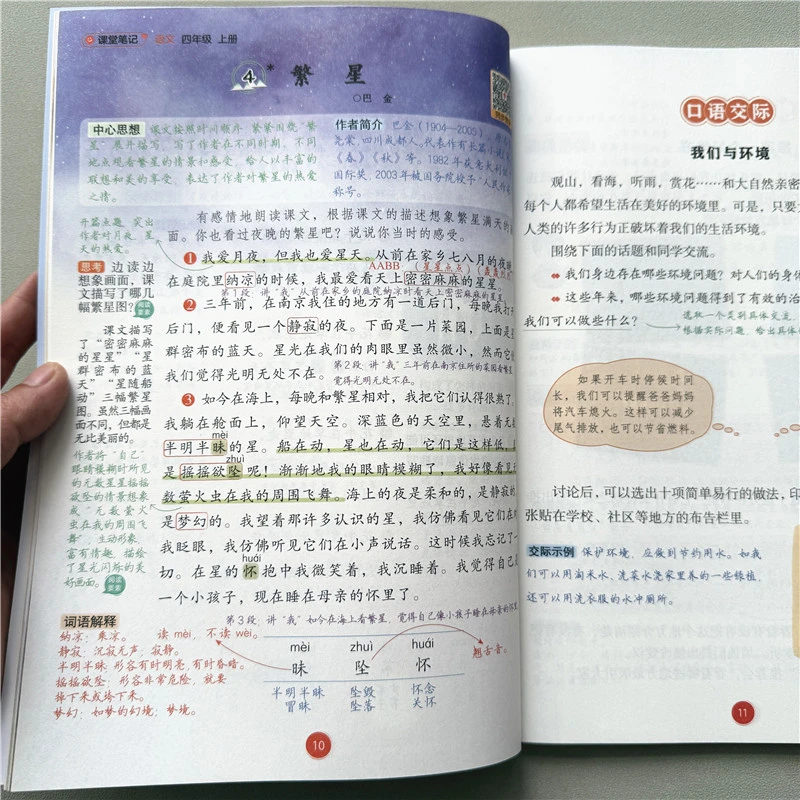 课堂笔记 语文 四年级 上册
4* 繁星
○巴 金
中心思想 课文按照时间顺序,紧紧围绕“繁
星”展开描写,写了作者在不同时期、不同
地点观看繁星的情景和感受,给人以丰富的
联想和美的享受,表达了作者对繁星的热爱
之情。
作者简介 巴金(1904—2005),
尧棠,四川成都人。代表作有长篇小说
《春》《秋》等。1982年获意大利
国际奖,2003年被国务院授予“人民作
称号。
开篇点题,突出
作者对月夜、星
天的热爱。
有感情地朗读课文,根据课文的描述想象繁星满天的
面。你也看过夜晚的繁星吧?说说你当时的感受。
❶我爱月夜,但我也爱星天。从前在家乡七八月的夜晚
AABB(星星点点)
在庭院里纳凉的时候,我最爱看天上密密麻麻的星星。
第1段:讲“我”从前在家乡的庭院纳凉时看天上密密麻麻的星星。
❷三年前,在南京我住的地方有一道后门,每晚我打开
后门,便看见一个静寂的夜。下面是一片菜园,上面是星
群密布的蓝天。星光在我们的肉眼里虽然微小,然而它
我们觉得光明无处不在。
第2段:讲“我”三年前在南京住所的菜园看繁星,
觉得光明无处不在。
❸如今在海上,每晚和繁星相对,我把它们认得很熟了。
我躺在舱面上,仰望天空。深蓝色的天空里,悬着无
mèi
半明半昧的星。船在动,星也在动,它们是这样低,
zhuì
是摇摇欲坠呢!渐渐地我的眼睛模糊了,我好像看见
数萤火虫在我的周围飞舞。海上的夜是柔和的,是静寂的
是梦幻的。我望着那许多认识的星,我仿佛看见它们在
我眨眼,我仿佛听见它们在小声说话。这时候我忘记了一
huái
切。在星的怀抱中我微笑着,我沉睡着。我觉得自己
一个小孩子,现在睡在母亲的怀里了。
第3段:讲“我”如今在海上看繁星,觉得自己像小孩子睡在母亲的怀里
思考 边读边
想象画面,课
文描写了哪几
幅繁星图?
阅读要素
课文描写
了“密密麻麻
的星星”“星
群密布的蓝
天”“星随船
动”三幅繁星
图。虽然三幅画
面不同,但都是
无比美丽的。
作者将“自己”
眼睛模糊时所见
的无数星星摇摇
欲坠的情景想象
成“无数萤火
虫在我的周围飞
舞”,生动形象、
富有情趣,描绘
了星光闪烁的美
好画面。
阅读要素
词语解释
纳凉:乘凉。
读 mèi,不读 wèi。
静寂:沉寂无声;寂静。
半明半昧:形容有时明亮,有时昏暗。
摇摇欲坠:形容非常危险,就要
掉下来或垮下来。
梦幻:如梦的幻境;梦境。
mèi zhuì huái
昧 坠 怀
翘舌音。
半明半昧 坠毁 怀念
冒昧 坠落 关怀
10
口语交际
我们与环境
观山,看海,听雨,赏花……和大自然亲密
每个人都希望生活在美好的环境里。可是,只要
人类的许多行为正破坏着我们的生活环境。
围绕下面的话题和同学交流。
我们身边存在哪些环境问题?对人们的身体
这些年来,哪些环境问题得到了有效的治
我们可以做些什么?
选取一个点到具体交流,
根据实际问题,给出具体
如果开车时停候时间
长,我们可以提醒爸爸妈妈
将汽车熄火。这样可以减少
尾气排放,也可以节省燃料。
讨论后,可以选出十项简单易行的做法,印
张贴在学校、社区等地方的布告栏里。
交际示例 保护环境,应做到节约用水。如我
们可以用淘米水、洗菜水浇家里养的一些绿植,
还可以用洗衣服的水冲厕所。
11